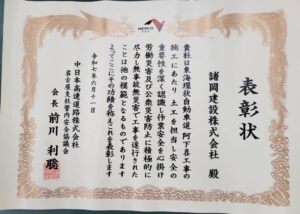 NEXCO
表彰状
諸岡建設株式会社 殿
貴社は東海環状自動車道阿下喜工事の
施工にあたり 土工を担当し安全の
重要性を深く認識し作業安全を心掛け
労働災害及び公衆災害防止に積極的に
尽力し無事故無災害で工事を遂行された
ことは他の模範となるものであります
よってここにその功績を称えこれを表彰します
令和七年六月十一日
中日本高速道路株式会社
名古屋支社管内安全協議会
会長 前川 利聡